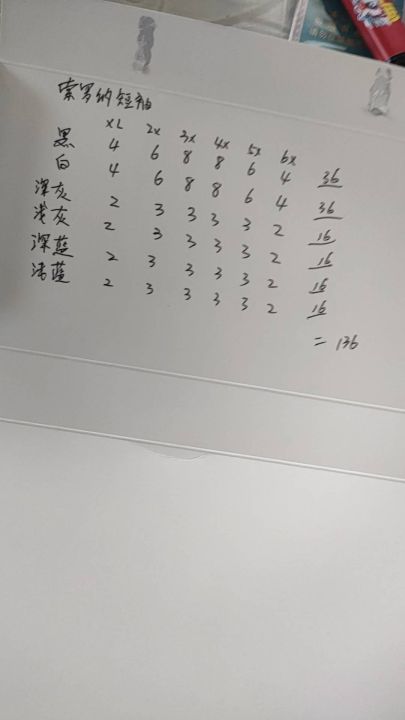 索罗纳短袖
XL 2x 3x 4x 5x 6x
黑 4 6 8 8 6 4 36
白 4 6 8 8 6 4 36
深灰 2 3 3 3 3 2 16
浅灰 2 3 3 3 3 2 16
深蓝 2 3 3 3 3 2 16
浅蓝 2 3 3 3 3 2 16
= 136